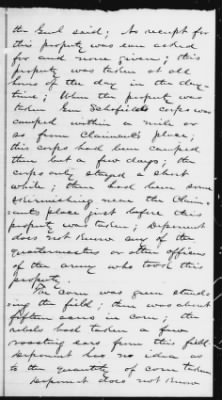 the Genl said; No receipt for
this property was ever asked
for and none given; this
property was taken at all
hours of the day in the day-
time; When the property was
taken Gen Schofields corps was
camped within a mile or
so from Claimants place;
this corps had been camped
there but a few days; the
corps only stayed a short
while; there had been some
skirmishing near the Claim-
ants place just before this
property was taken; Deponent
does not know any of the
quartermasters or other officers
of the army who took this
property.
The corn was green stand-
ing the field; there was about
fifteen acres in corn; the
rebels had taken a few
roasting ears from this field
Deponent has no idea as
to the quantity of corn taken
Deponent does not know